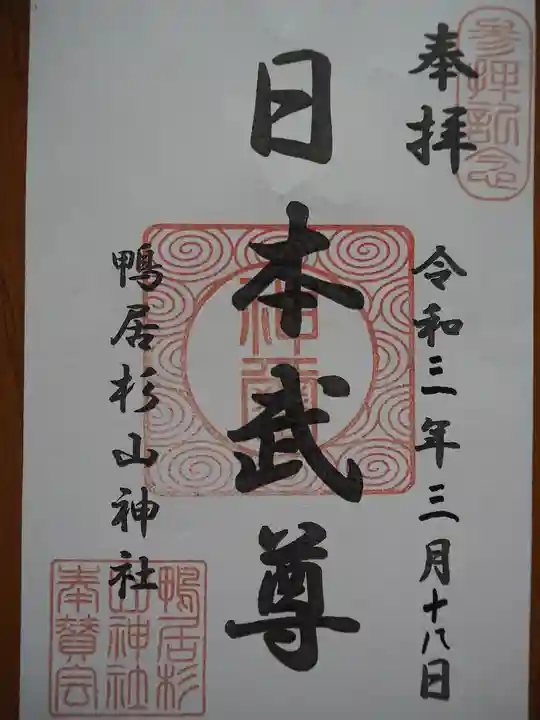 参拝記念
奉拝
令和三年三月十八日
日本武尊
神璽
鴨居杉山神社
鴨居杉
山神社
奉賛会